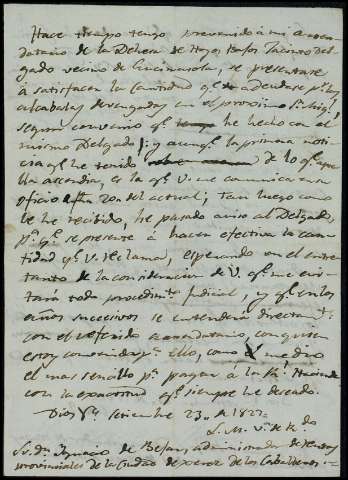 Hace tiempo tengo prevenido á mi arren
datario de la Dehesa de Hoyos Rasos Jacinto Del-
gado vecino de Encinasola, se presentase
á satisfacer la cantidad qe. adeudase pr. las
alcabalas devengadas en el proximo Sn. Migl.
segun convenio qe. he hecho con el
mismo Delgado; y aunqe. la primera noti-
cia qe. he tenido de lo qe. aque
lla ascendia, es la qe. V. me comunica en su
oficio 20 del actual; tan luego como
le he recibido, he pasado aviso al Delgado,
pa. qe. se presente á hacer efectiva la can-
tidad qe. V. reclama, esperando en el entre
tanto de la consideracion de V. qe. me evi-
tará todo procedimto. judicial, y qe. en los
años succesivos se entenderá directamte.
con el referido arrendatario, con quien
estoy convenido pa. ello, como el medio
el mas sencillo pa. pagar á la Rl. Hacienda
con la exactitud qe. siempre he deseado.
Dios setiembre 23 de 1827
Sr. Dn. Ignacio de administrador de Rentas
provinciales de la Ciudad de Xerez de los Caballeros